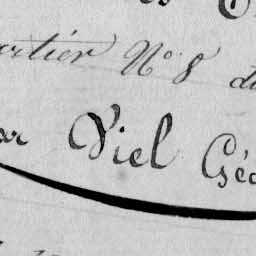 artier No 8 d
ar Viel Géo